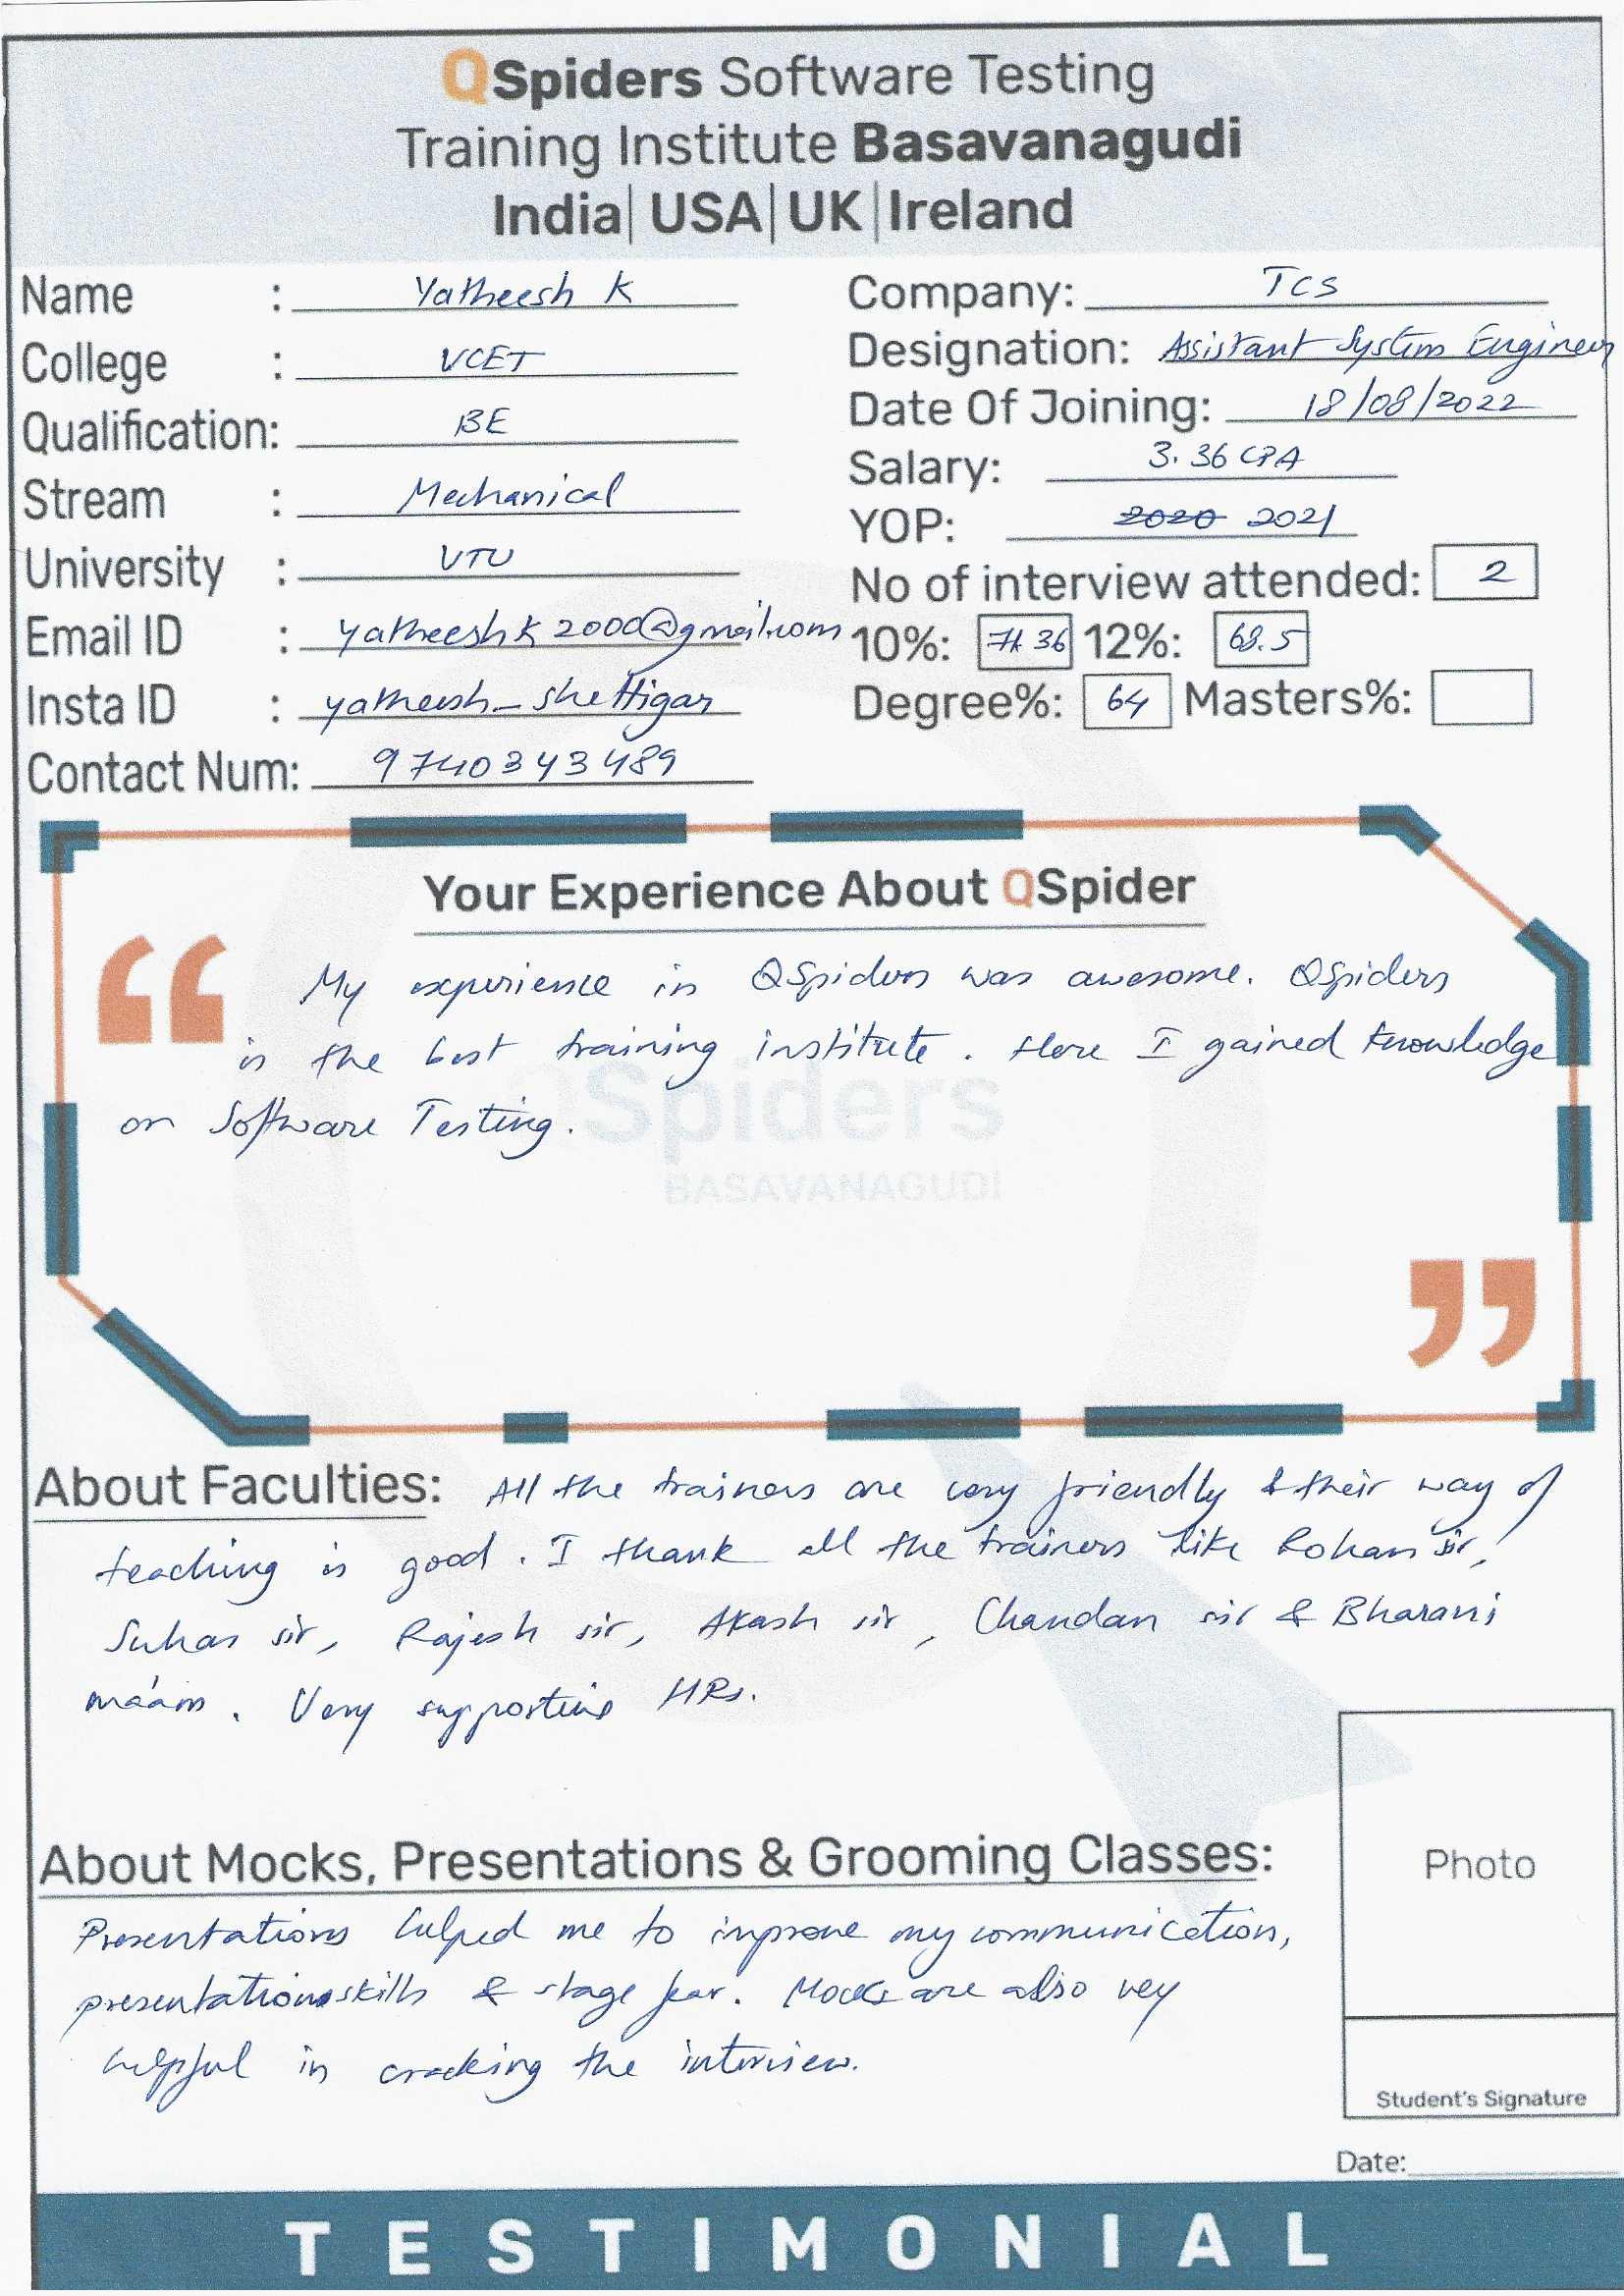 QSpiders Software Testing
Training Institute Basavanagudi
India| USA| UK| Ireland
Name : Yatheesh K
College : VCET
Qualification: BE
Stream : Mechanical
University : VTU
Email ID : yatheeshk2000@gmail.com
Insta ID : yatheesh_shettigar
Contact Num: 9740343489
Company: TCS
Designation: Assistant System Engineer
Date Of Joining: 18/08/2022
Salary: 3.36 LPA
YOP: 2020 2021
No of interview attended: 2
10%: 12%: 68.5
Degree%: 64 Masters%:
Your Experience About QSpider
“ My experience in QSpiders was awesome. QSpiders
is the best training institute. Here I gained knowledge
on Software Testing.
QSpiders
BASAVANAGUDI
”
About Faculties: All the trainers are very friendly & their way of
teaching is good. I thank all the trainers like Rohan sir,
Suhas sir, Rajesh sir, Akash sir, Chandan sir & Bharani
ma'am. Very supportive HRs.
About Mocks, Presentations & Grooming Classes:
Presentations helped me to improve my communication,
presentation skills & stage fear. Mocks are also vey
helpful in cracking the interview.
Photo
Student's Signature
Date:
TESTIMONIAL